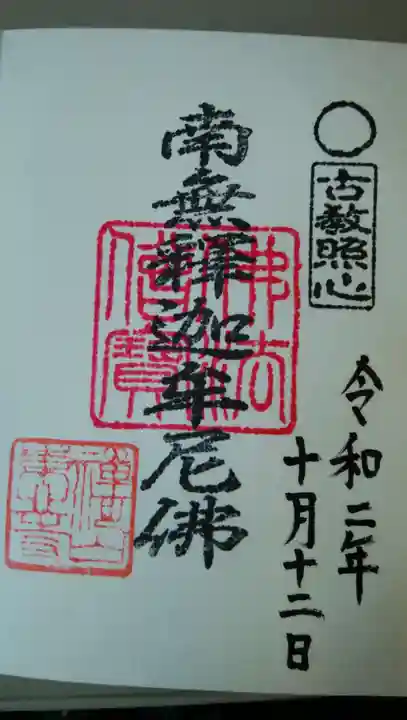 古教照心
令和二年
十月十二日
南無釋迦牟尼佛
佛法僧寶